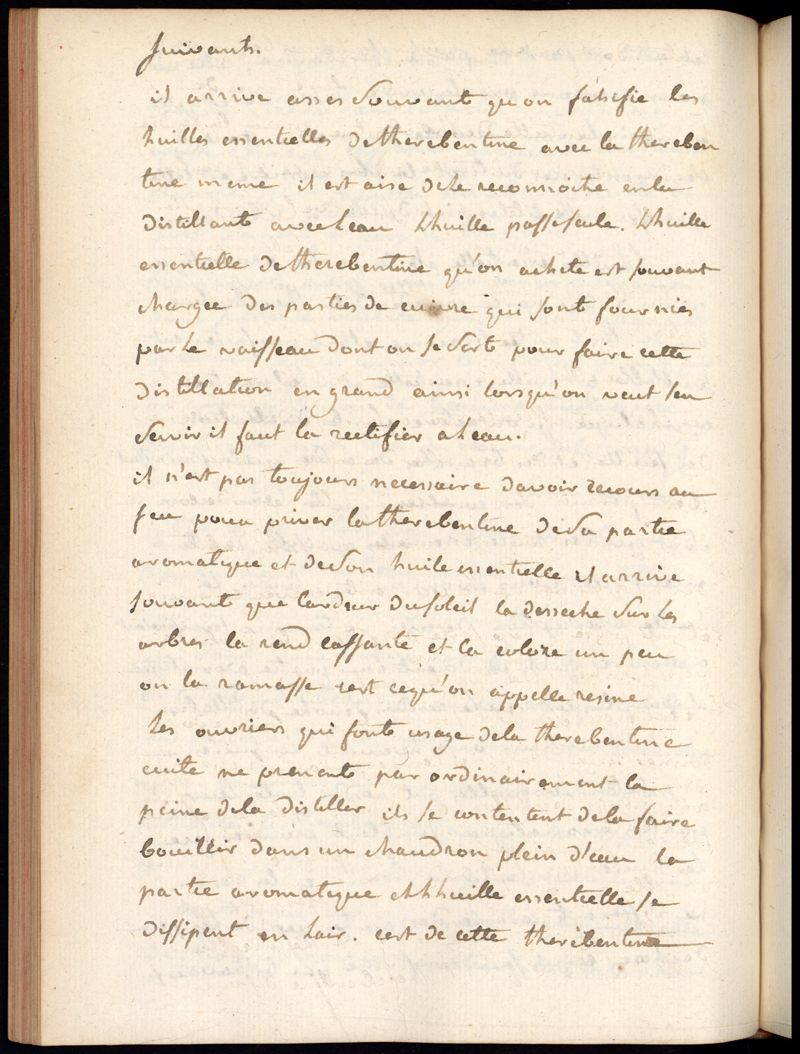 suivants.
il arrive asses souvant qu on falsifie les
huilles essentielles detherebentine avec la thereben
tine meme il est aisé dele reconnoitre enla
distillant avec leau Lhuille passe seule. Lhuille
essentielle detherebentine qu'on achete est souvant
chargee des parties de cuivre qui sont fournies
par le vaisseau dont on se sert pour faire cette
distillation en grand ainsi lorsqu'on veut sen
servir il faut la rectifier a leau.
il n'est pas toujours necessaire davoir recours au
feu pour priver la therebentine desa partie
aromatique et deson huile essentielle il arrive
souvant que lardeur dusoleil la desseche sur les
arbres la rend cassante et la colore un peu
on la ramasse cest cequ'on appelle resine
Les ouvriers qui font usage dela therebentine
cuite ne prenent pas ordinairement la
peine dela distiller ils se contentent dela faire
bouillir dans un chaudron plein d'eau la
partie aromatique et Lhuille essentielle se
dissipent en lair. cest de cette therebentine